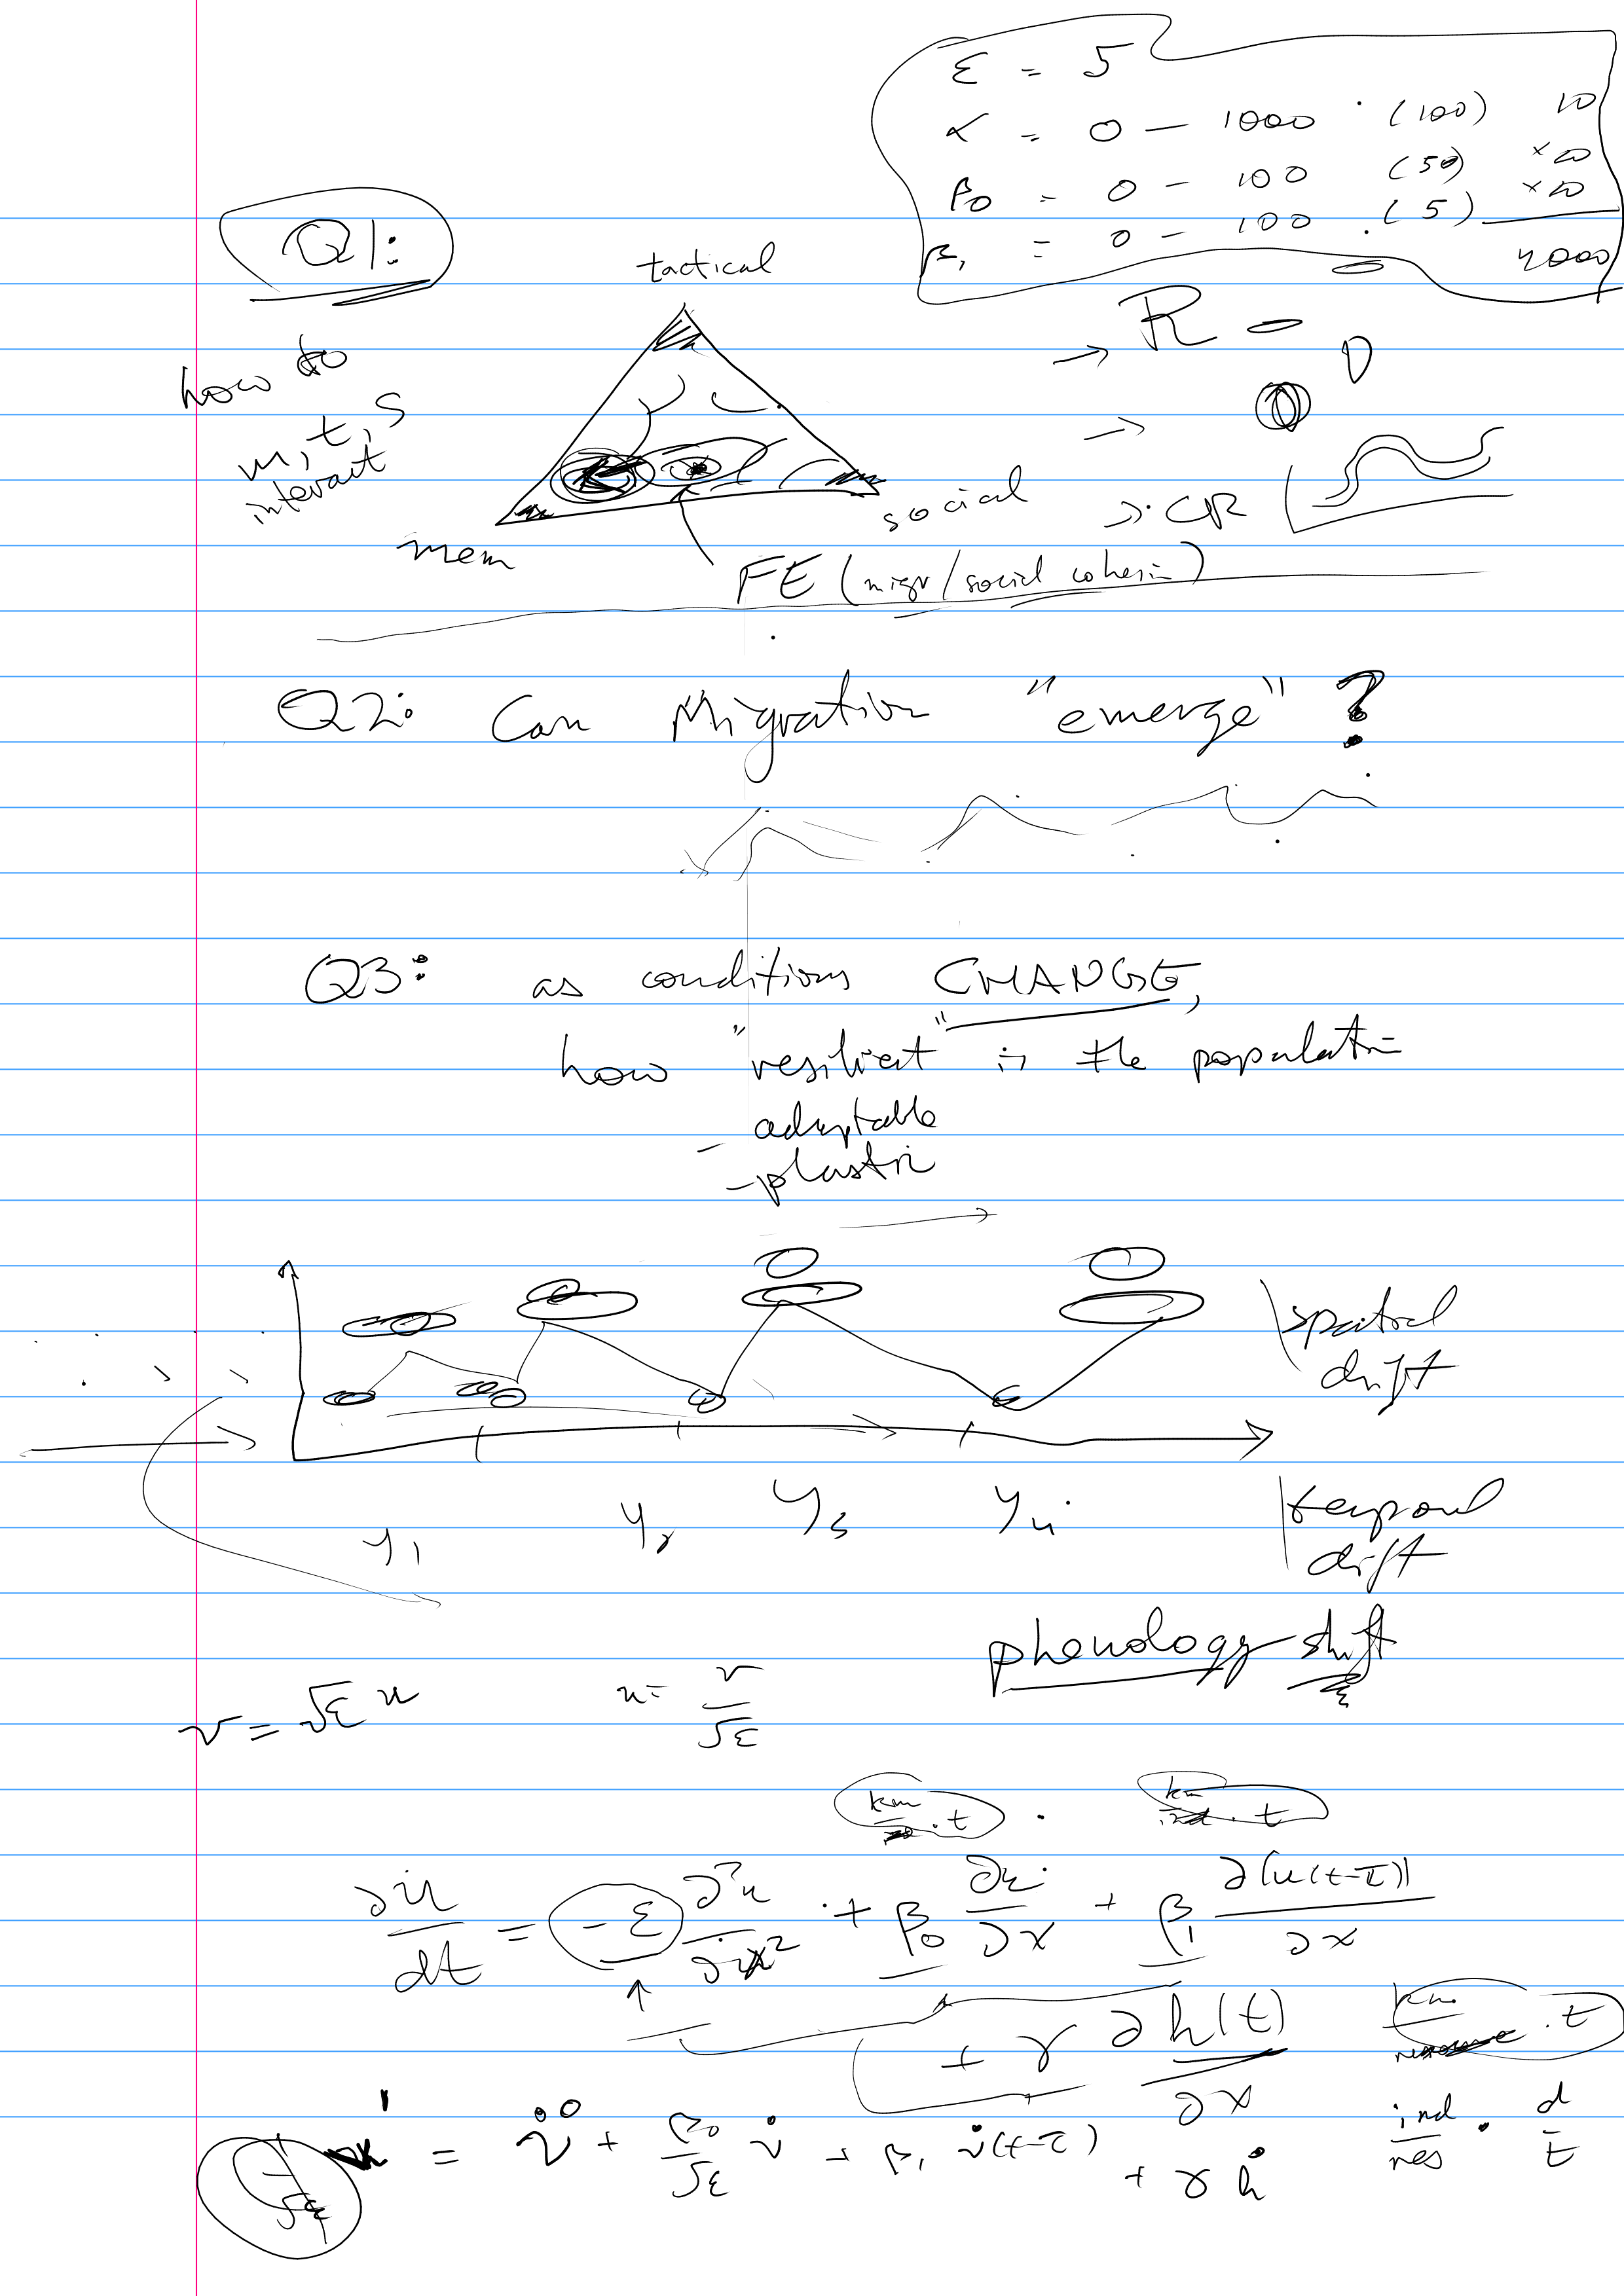 ε = 5
α = 0 – 1000 (100) 10
β0 = 0 – 100 (50) ×20
β1 = 0 – 100 (5) ×20
4000
Q1:
tactical
how do
m, t, s
interact
mem
social
→ R –
→
→ CR
FE (migr/social cohesin)
Q2: Can Migration "emerge"?
Q3: as conditions CHANGE,
how "resilient" is the population
- adaptable
- plastic
spatial
drift
y1 y2 y3 y4
temporal
drift
phenology shift
v = √ε u u = v/√ε
km/ind · t km/ind · t
∂u/dt = -ε ∂²u/∂x² + β0 ∂u/∂x + β1 ∂(u(t-τ))/∂x
+ γ ∂h(t)/∂x km/resource · t
1/√ε = v̈ + β0/√ε v̇ + β1 v̇(t-τ) + γ ḣ
ind/res · d/t